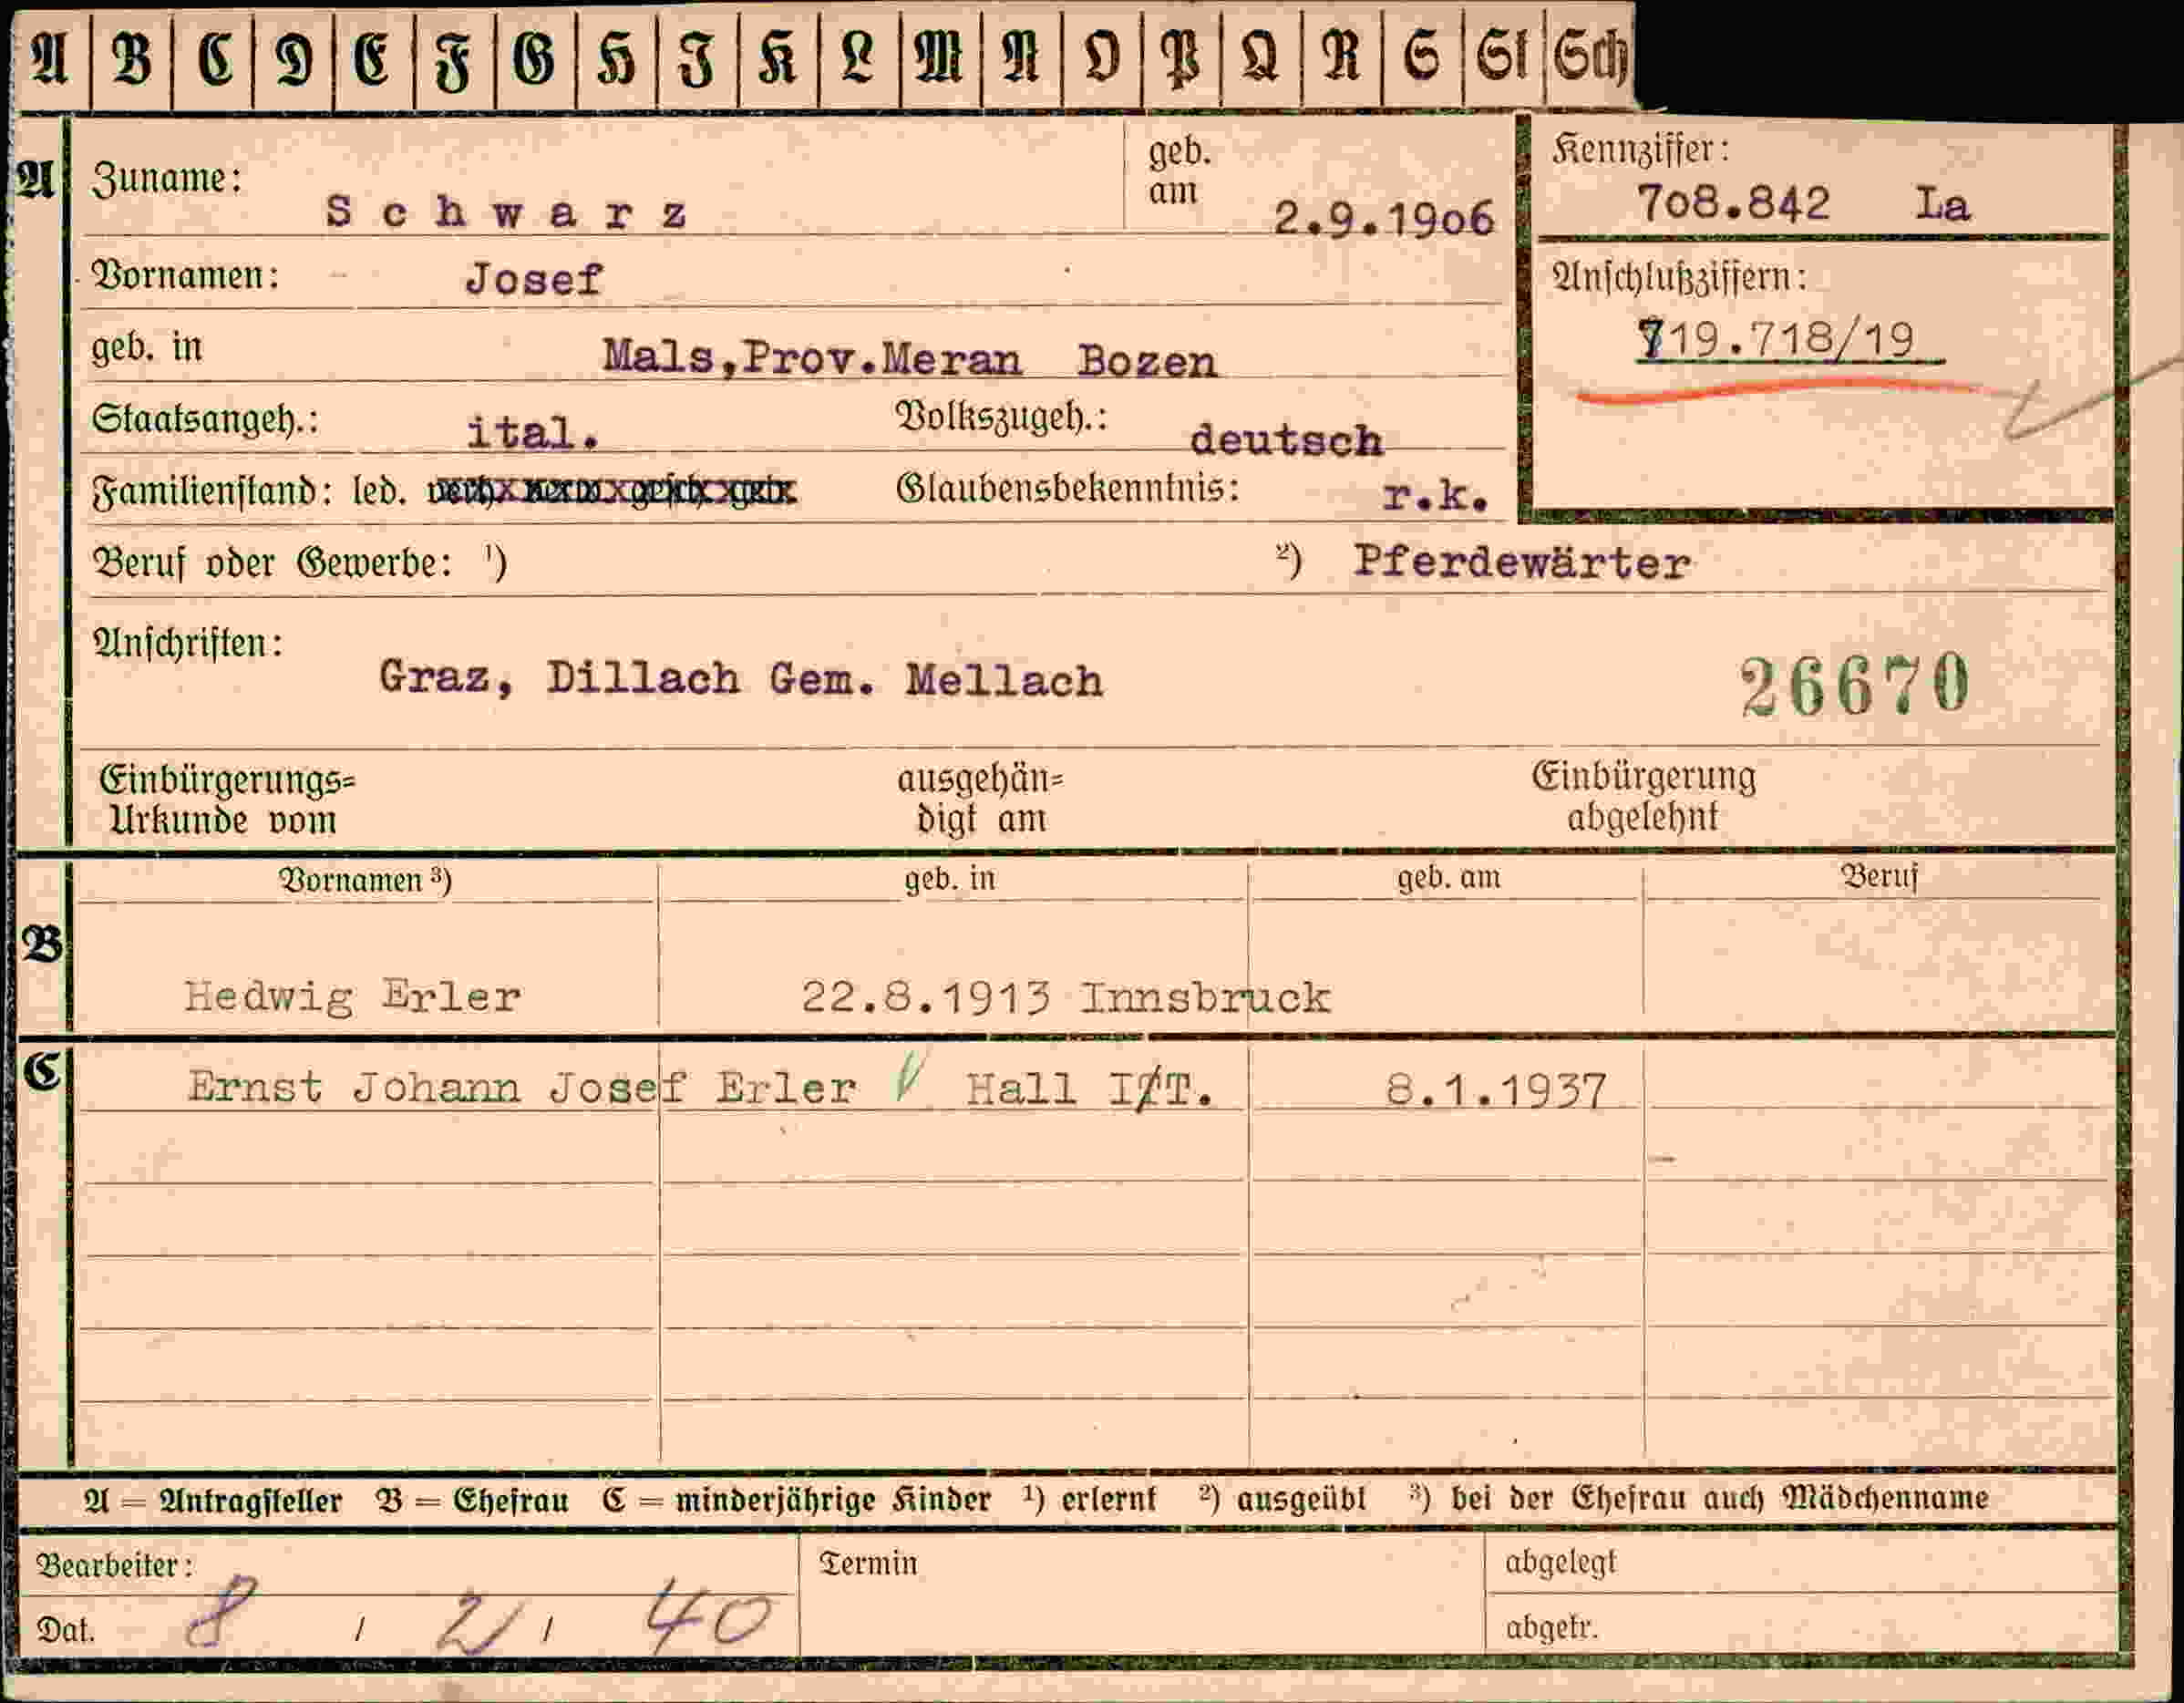 A B C D E F G H I K L M N O P Q R S St Sch
A Zuname: Schwarz geb. am 2.9.1906
Kennziffer: 708.842 La
Vornamen: Josef
Anschlußziffern: 719.718/19
geb. in Mals,Prov.Meran Bozen
Staatsangeh.: ital. Volkszugeh.: deutsch
Familienstand: led. verh. verw. gesch. getr. Glaubensbekenntnis: r.k.
Beruf oder Gewerbe: ¹) ²) Pferdewärter
Anschriften: Graz, Dillach Gem. Mellach 26670
Einbürgerungs= ausgehän= Einbürgerung
Urkunde vom digt am abgelehnt
Vornamen ³) geb. in geb. am Beruf
B Hedwig Erler 22.8.1913 Innsbruck
C Ernst Johann Josef Erler Hall I/T. 8.1.1937
A = Antragsteller B = Ehefrau C = minderjährige Kinder ¹) erlernt ²) ausgeübt ³) bei der Ehefrau auch Mädchenname
Bearbeiter: Termin abgelegt
Dat. 8 / 2 / 40 abgetr.